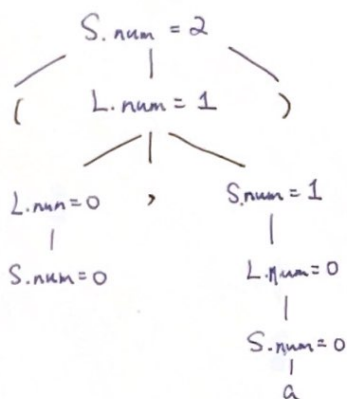 S.num = 2
( L.num = 1 )
L.num=0 , S.num = 1
S.num=0 L.num=0
S.num=0
a